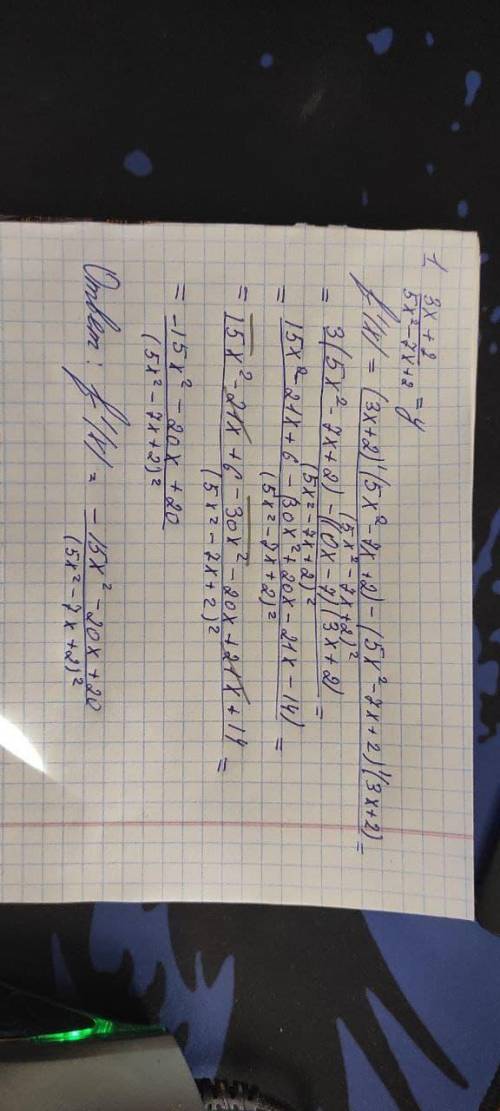 1. (3x + 2)/(5x² - 7x + 2) = y
f'(x) = ((3x+2)'(5x² - 7x + 2) - (5x² - 7x + 2)'(3x+2))/(5x² - 7x + 2)² =
= (3(5x² - 7x + 2) - (10x - 7)(3x + 2))/(5x² - 7x + 2)² =
= (15x² - 21x + 6 - (30x² + 20x - 21x - 14))/(5x² - 7x + 2)² =
= (15x² - 21x + 6 - 30x² - 20x + 21x + 14)/(5x² - 7x + 2)² =
= (-15x² - 20x + 20)/(5x² - 7x + 2)²
Ответ: f'(x) = (-15x² - 20x + 20)/(5x² - 7x + 2)²